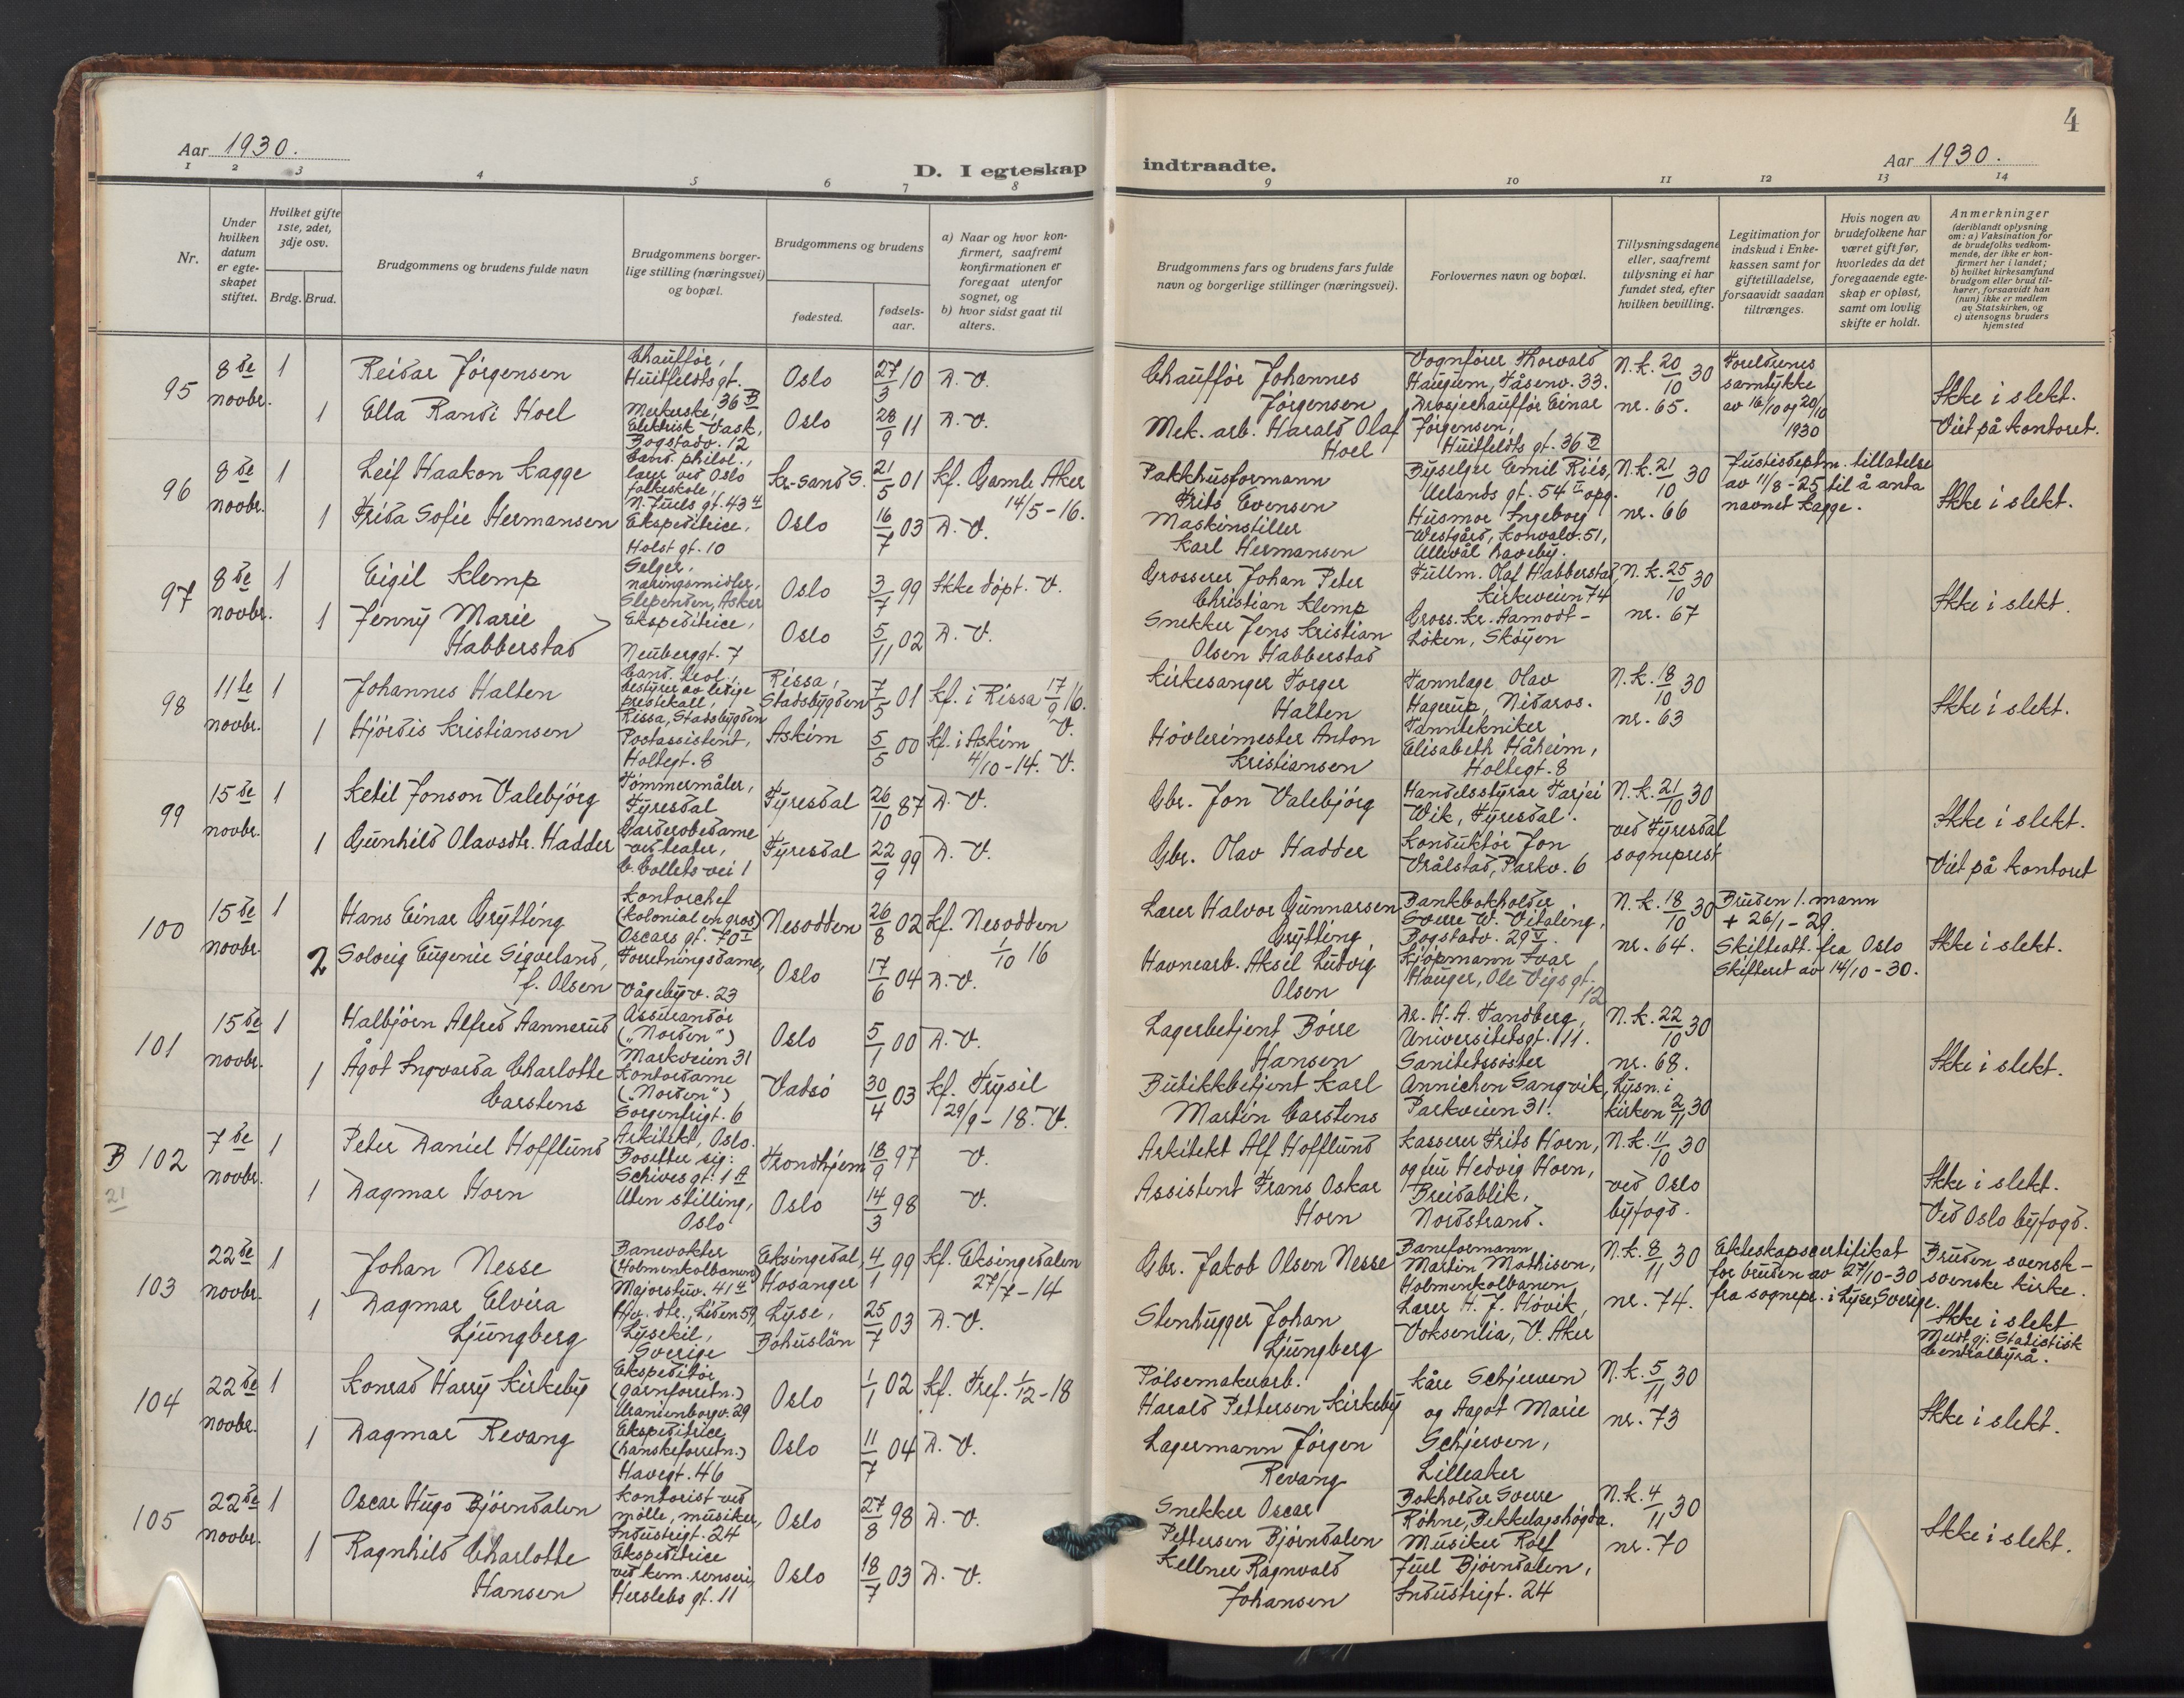 4
Aar 1930.
D. I egteskap
indtraadte.
Aar 1930.
1 2 3 4 5 6 7 8
9 10 11 12 13 14
Nr.
Under hvilken datum er egte-skapet stiftet.
Hvilket gifte 1ste, 2det, 3dje osv.
Brdg. Brud.
Brudgommens og brudens fulde navn
Brudgommens borger-lige stilling (næringsvei) og bopæl.
Brudgommens og brudens
fødested.
fødsels-aar.
a) Naar og hvor kon-firmert, saafremt konfirmationen er foregaat utenfor sognet, og
b) hvor sidst gaat til alters.
Brudgommens fars og brudens fars fulde navn og borgerlige stillinger (næringsvei).
Forlovernes navn og bopæl.
Tillysningsdagene eller, saafremt tillysning ei har fundet sted, efter hvilken bevilling.
Legitimation for indskud i Enke-kassen samt for giftetilladelse, forsaavidt saadan tiltrænges.
Hvis nogen av brudefolkene har været gift før, hvorledes da det foregaaende egte-skap er opløst, samt om lovlig skifte er holdt.
Anmerkninger (deriblandt oplysning om: a) Vaksination for de brudefolks vedkom-mende, der ikke er kon-firmert her i landet; b) hvilket kirkesamfund brudgom eller brud til-hører, forsaavidt han (hun) ikke er medlem av Statskirken, og c) utensogns bruders hjemsted
95 8de novbr. 1 Reidar Jørgensen Chauffør, Huitfeldts gt. 36 B Oslo 27/3 10 D. V. Chauffør Johannes Jørgensen Vognfører Thorvald Haugum, Tåsenv. 33. N.k. 20/10 30 Foreldrenes samtykke av 16/10 og 20/10 1930 Ikke i slekt.
1 Ella Randi Hoel Merkerske, Elektrisk Vask, Bogstadv. 12 Oslo 28/9 11 D. V. Mek. arb. Harald Olaf Hoel Drosjechauffør Einar Jørgensen, Huitfeldts gt. 36 B nr. 65. Viet på kontoret.
96 8de novbr. 1 Leif Haakon Kagge Cand. philol., lærer ved Oslo folkeskole, N. Juels gt. 43 4 Kr-sand S. 21/5 01 Kf. Gamle Aker 14/5-16. Pakkhusformann Frits Evensen Byselger Emil Riis, Uelands gt. 54 II opg. N.k. 21/10 30 Justisdeptm. tillatelse av 11/8-25 til å anta navnet Kagge. Ikke i slekt.
1 Frida Sofie Hermansen Ekspeditrice, Holst gt. 10 Oslo 16/7 03 D. V. Maskinstiller Karl Hermansen Husmor Ingeborg Westgård, Konvalv. 51, Ullevål haveby. nr. 66
97 8de novbr. 1 Eigil Klemp Selger, næringsmidler, Slependen, Asker Oslo 3/7 99 Ikke døpt. V. Grosserer Johan Peter Christian Klemp Fullm. Olaf Habberstad, Kirkeveien 74 N.k. 25/10 30 Ikke i slekt.
1 Jenny Marie Habberstad Ekspeditrice, Neuberggt. 7 Oslo 5/11 02 D. V. Snekker Jens Kristian Olsen Habberstad Gross. Kr. Aamodt-Løken, Skøyen nr. 67
98 11te novbr. 1 Johannes Halten Cand. teol., bestyrer av ledige prestekall, Rissa, Stadsbygden Rissa, Stadsbygden 7/5 01 Kf. i Rissa 17/9 16. V. Kirkesanger Torger Halten Tannlæge Olav Hagerup, Nidaros. N.k. 18/10 30 Ikke i slekt.
1 Hjørdis Kristiansen Postassistent, Holtegt. 8 Askim 5/5 00 Kf. i Askim 4/10-14. V. Høvlerimester Anton Kristiansen Tanntekniker Elisabeth Håheim, Holtegt. 8 nr. 63
99 15de novbr. 1 Ketil Jonson Valebjørg Tømmermåler, Fyresdal Fyresdal 26/10 87 D. V. Gbr. Jon Valebjørg Handelsstyrar Tarjei Wik, Fyresdal. N.k. 21/10 30 Ikke i slekt.
1 Gunhild Olavsdtr. Hadder Garderobedame ved teater, C. Collets vei 1 Fyresdal 22/9 99 D. V. Gbr. Olav Hadder Konduktør Jon Vrålstad, Parkv. 6 ved Fyresdal sogneprest Viet på kontoret
100 15de novbr. 1 Hans Einar Grytting Kontorchef (kolonial en gros) Oscars gt. 70 I Nesodden 26/8 02 Kf. Nesodden 1/10 16 Lærer Halvor Gunnarsen Grytting Bankbokholder Sverre W. Vitaling, Bogstadv. 29 V. N.k. 18/10 30 Bruden 1. mann + 26/1-29. Skifteatt. fra Oslo Skifteret av 14/10-30. Ikke i slekt.
2 Solveig Eugenie Sigveland, f. Olsen Forretningsdame, Vågebyv. 23 Oslo 17/6 04 D. V. Havnearb. Aksel Ludvig Olsen Kjøpmann Ivar Hauger, Ole Vigs gt. 12 nr. 64.
101 15de novbr. 1 Halbjørn Alfred Aannerud Assurandør ("Norden") Markveien 31 Oslo 5/1 00 D. V. Lagerbetjent Børre Hansen Dr. H. A. Tandberg, Universitetsgt. 11. N.k. 22/10 30 Ikke i slekt.
1 Ågot Ingvarda Charlotte Carstens Kontordame ("Norden") Sorgenfrigt. 6 Vadsø 30/4 03 Kf. Trysil 29/9-18. V. Butikkbetjent Karl Martin Carstens Sanitetssøster Annichen Sangvik, Parkveien 31. nr. 68. Lysn. i kirken 2/11 30
B 102 7de novbr. 1 Peter Daniel Hofflund Arkitekt, Oslo. Bosetter sig: Schives gt. 1 A Trondhjem 18/9 97 V. Arkitekt Alf Hofflund Kasserer Frits Horn, og fru Hedvig Horn, Breidablik, Nordstrand. N.k. 11/10 30 ved Oslo byfogd. Ikke i slekt. Ved Oslo byfogd.
21 1 Dagmar Horn Uten stilling, Oslo Oslo 14/3 98 V. Assistent Frans Oskar Horn
103 22de novbr. 1 Johan Nesse Banevokter (Holmenkolbanen) Majorstuv. 41 4 Eksingedal, Hosanger 4/1 99 Kf. Eksingedalen 27/7-14 Gbr. Jakob Olsen Nesse Baneformann Martin Mathisen, Holmenkolbanen N.k. 8/11 30 Ekteskapscertifikat for bruden av 27/10-30 fra sognepr. i Lyse, Sverige. Bruden svensk- svenske kirke.
1 Dagmar Elvira Ljungberg Hv. dtr., Liden 59, Lysekil, Sverige Lyse, Bohuslän 25/7 03 D. V. Stenhugger Johan Ljungberg Lærer H. J. Høvik, Voksenlia, V. Aker nr. 74. Ikke i slekt Medt. gj. Statistisk Centralbyrå.
104 22de novbr. 1 Konrad Harry Kirkeby Ekspeditør (garnforretn.) Uranienborgv. 29 Oslo 1/1 02 Kf. Tref. 1/12-18 Pølsemakerarb. Harald Pettersen Kirkeby Kåre Schjerven og Aagot Marie Schjerven, Lilleaker N.k. 5/11 30 nr. 73 Ikke i slekt.
1 Dagmar Revang Ekspeditrice (hanskeforretn.) Havegt. 46 Oslo 11/7 04 D. V. Lagermann Jørgen Revang
105 22de novbr. 1 Oscar Hugo Bjørndalen Kontorist ved mølle, musiker, Industrigt. 24 Oslo 27/8 98 D. V. Snekker Oscar Pettersen Bjørndalen Bokholder Sverre Røhne, Bekkelagshøgda. N.k. 4/11 30 Ikke i slekt.
1 Ragnhild Charlotte Hansen Ekspeditrice ved kem. renseri, Herslebs gt. 11 Oslo 18/7 03 D. V. Kellner Ragnvald Johansen Musiker Rolf Juel Bjørndalen, Industrigt. 24 nr. 70